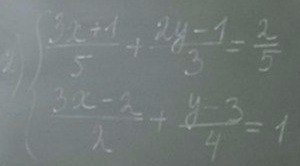 2) { (3x+1)/5 + (2y-1)/3 = 2/5
(3x-2)/2 + (y-3)/4 = 1